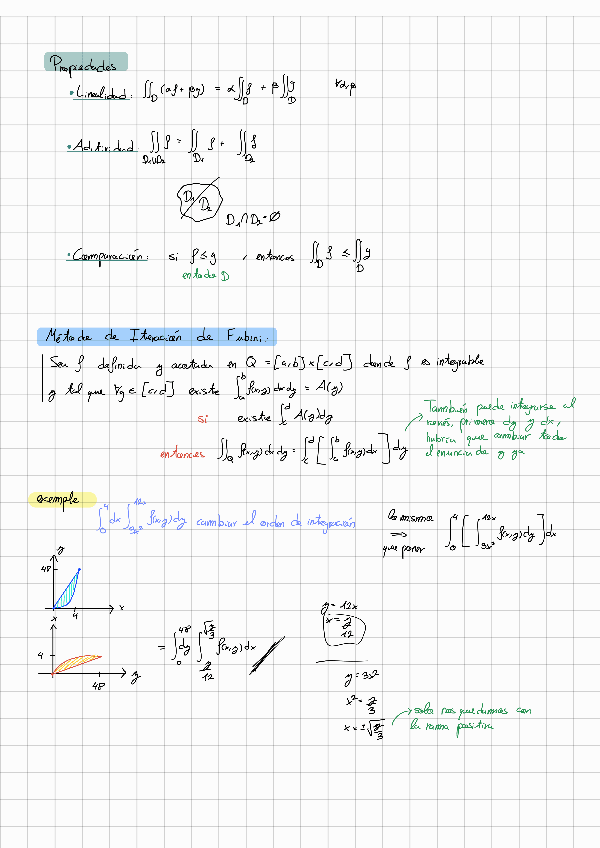 Propiedades
• Linealidad: ∬_D (αf + βg) = α∬_D f + β∬_D g ∀α,β
• Aditividad ∬_{D₁∪D₂} f = ∬_{D₁} f + ∬_{D₂} f
D₁ D₂
D₁∩D₂=∅
• Comparación: si f ≤ g, entonces ∬_D f ≤ ∬_D g
en todo D
Método de Iteración de Fubini:
Sea f definida y acotada en Q = [a,b]×[c,d] donde f es integrable
y tal que ∀y ∈ [c,d] existe ∫_a^b f(x,y) dx dy = A(y)
si existe ∫_c^d A(y)dy
entonces ∬_Q f(x,y) dx dy = ∫_c^d [ ∫_c^b f(x,y)dx ] dy
También puede integrarse al
revés, primero dy y dx,
habría que cambiar todo
el enunciado y ya
exemple
∫_0^4 dx ∫_{3x²}^{12x} f(x,y)dy cambiar el orden de integración
lo mismo
⇒
que poner
∫_0^4 [ ∫_{3x²}^{12x} f(x,y)dy ] dx
y
48
4
x
x
4
48
y
= ∫_0^{48} dy ∫_{y/12}^{√(y/3)} f(x,y)dx
y = 12x
x = y/12
y = 3x²
x² = y/3
x = ±√(y/3)
solo nos quedamos con
la rama positiva